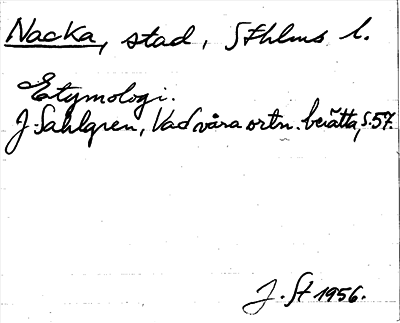 Nacka, stad, Sthlms l.
Etymologi.
J. Sahlgren, Vad våra ortn. berätta, s. 57.
J. St 1956.